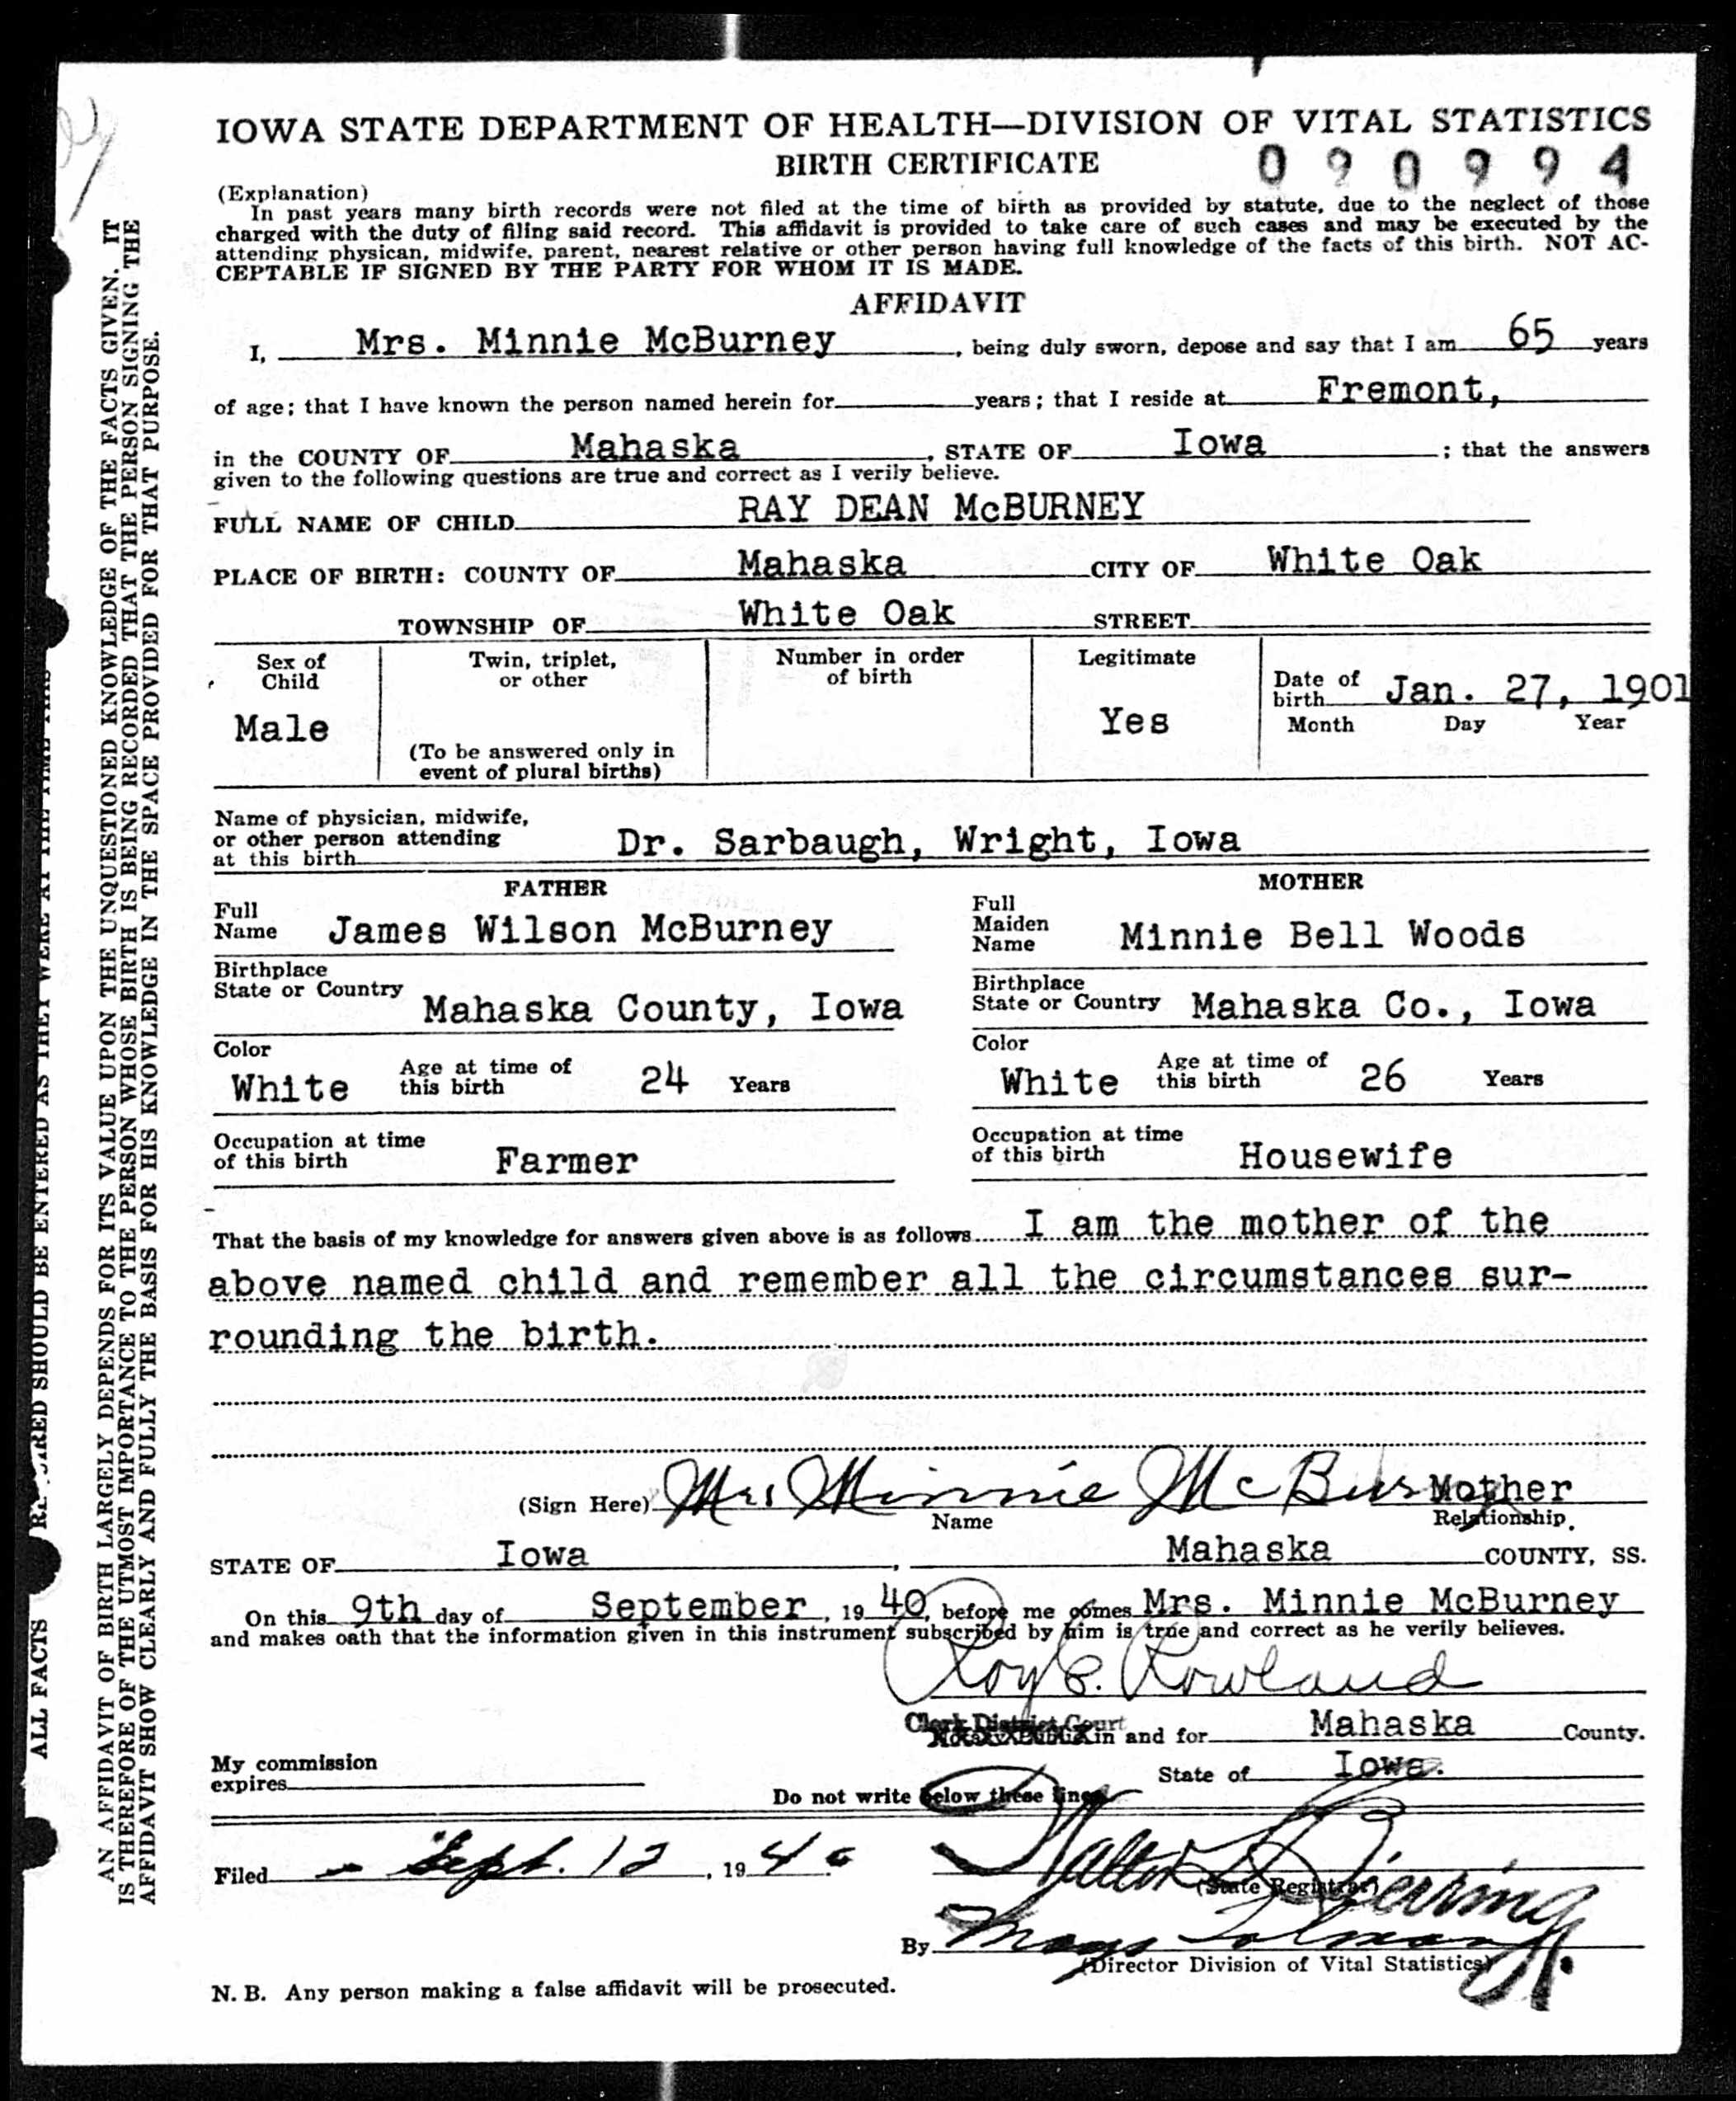 IOWA STATE DEPARTMENT OF HEALTH—DIVISION OF VITAL STATISTICS
BIRTH CERTIFICATE
090994
(Explanation)
In past years many birth records were not filed at the time of birth as provided by statute, due to the neglect of those
charged with the duty of filing said record. This affidavit is provided to take care of such cases and may be executed by the
attending physican, midwife, parent, nearest relative or other person having full knowledge of the facts of this birth. NOT AC-
CEPTABLE IF SIGNED BY THE PARTY FOR WHOM IT IS MADE.
AFFIDAVIT
I, Mrs. Minnie McBurney, being duly sworn, depose and say that I am 65 years
of age; that I have known the person named herein for years; that I reside at Fremont,
in the COUNTY OF Mahaska, STATE OF Iowa; that the answers
given to the following questions are true and correct as I verily believe.
FULL NAME OF CHILD RAY DEAN McBURNEY
PLACE OF BIRTH: COUNTY OF Mahaska CITY OF White Oak
TOWNSHIP OF White Oak STREET
Sex of Child
Male
Twin, triplet, or other
(To be answered only in
event of plural births)
Number in order
of birth
Legitimate
Yes
Date of
birth Jan. 27, 1901
Month Day Year
Name of physician, midwife,
or other person attending
at this birth Dr. Sarbaugh, Wright, Iowa
FATHER
Full
Name James Wilson McBurney
Birthplace
State or Country Mahaska County, Iowa
Color
White Age at time of
this birth 24 Years
Occupation at time
of this birth Farmer
MOTHER
Full
Maiden
Name Minnie Bell Woods
Birthplace
State or Country Mahaska Co., Iowa
Color
White Age at time of
this birth 26 Years
Occupation at time
of this birth Housewife
That the basis of my knowledge for answers given above is as follows I am the mother of the
above named child and remember all the circumstances sur-
rounding the birth.
(Sign Here) Mrs Minnie McBur Mother
Name Relationship.
STATE OF Iowa, Mahaska COUNTY, SS.
On this 9th day of September, 1940, before me comes Mrs. Minnie McBurney
and makes oath that the information given in this instrument subscribed by him is true and correct as he verily believes.
Roy C. Rowland
Clerk District Court
in and for Mahaska County.
My commission
expires
State of Iowa.
Do not write below these lines
Filed Sept. 12, 1940
Walter L Bierring
(State Registrar)
By
(Director Division of Vital Statistics)
N. B. Any person making a false affidavit will be prosecuted.
AN AFFIDAVIT OF BIRTH LARGELY DEPENDS FOR ITS VALUE UPON THE UNQUESTIONED KNOWLEDGE OF THE FACTS GIVEN. IT
IS THEREFORE OF THE UTMOST IMPORTANCE TO THE PERSON WHOSE BIRTH IS BEING RECORDED THAT THE PERSON SIGNING THE
AFFIDAVIT SHOW CLEARLY AND FULLY THE BASIS FOR HIS KNOWLEDGE IN THE SPACE PROVIDED FOR THAT PURPOSE.
ALL FACTS SHOULD BE ENTERED AS THEY WERE AT THE TIME